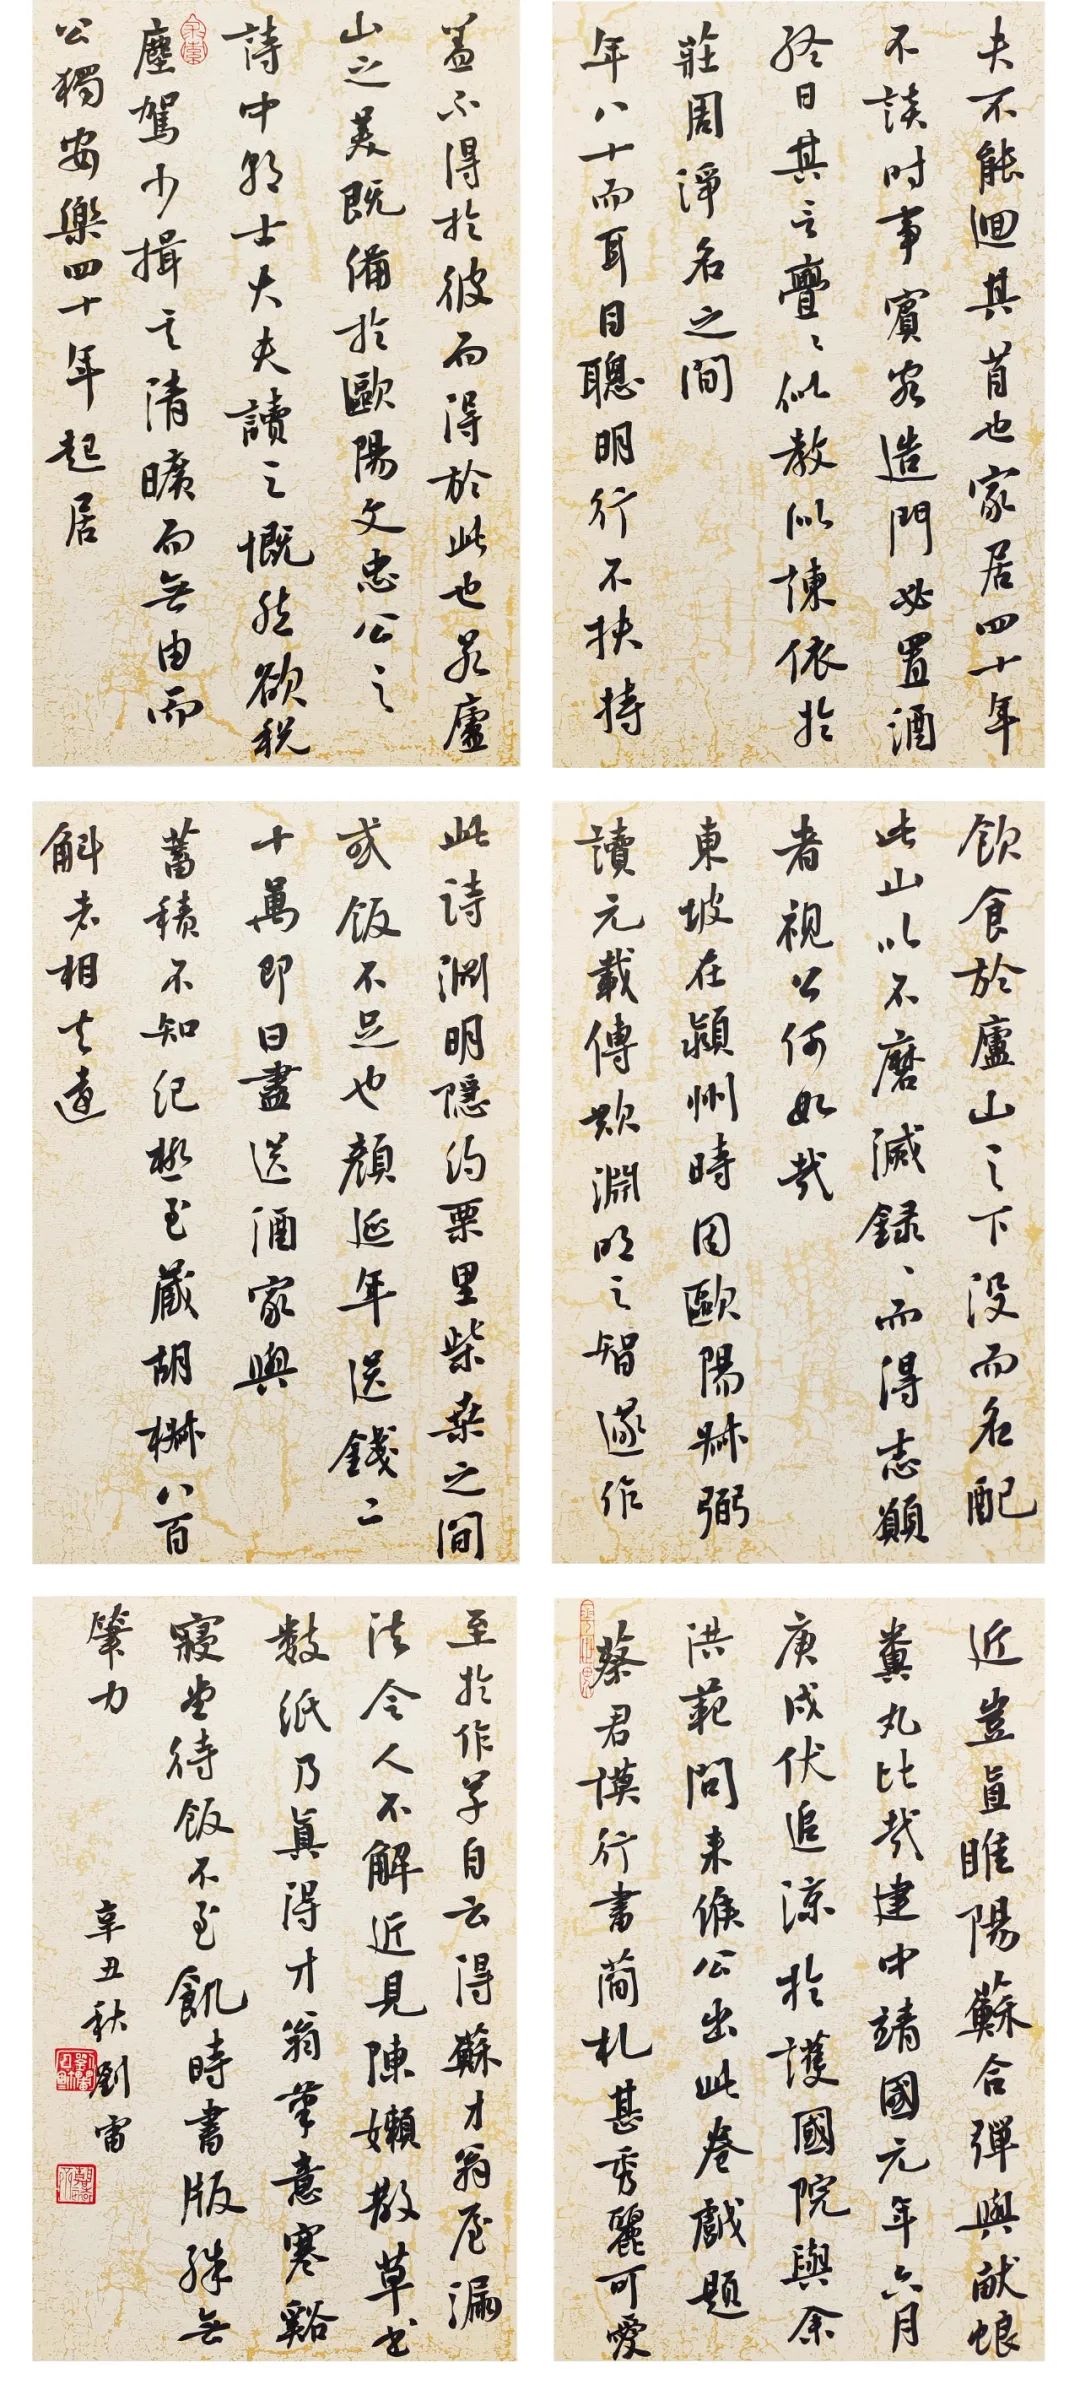 夫不能迴其首也家居四十年
不談时事賓客造門必置酒
終日其言亹〻似教似諫依於
莊周淨名之間
年八十而耳目聰明行不扶持
蓋不得於彼而得於此也若廬
山之美既備於歐陽文忠公之
詩中朝士大夫讀之慨然欲税
塵駕少揖其清曠而無由而
公獨安樂四十年起居
飲食於廬山之下没而名配
此山以不磨滅録、而得志願
者視公何如哉
東坡在潁州時因歐陽叔弼
讀元載傳歎淵明之智遂作
此詩淵明隱約栗里柴桑之間
或飯不足也顏延年送錢二
十萬即日盡送酒家與
蓄積不知紀極至藏胡椒八百
斛者相去遠
近豈直睢陽蘇合彈與蜣蜋
糞丸比哉建中靖國元年六月
庚戌伏追涼於護國院與余
洪範問来候公出此卷戲題
蔡君謨行書簡札甚秀麗可愛
至於作草自云得蘇才翁屋漏
法令人不解近見陳懶散草書
數紙乃真得才翁筆意寒谿
寢堂待飯不至飢時書版殊無
筆力
辛丑秋劉雷